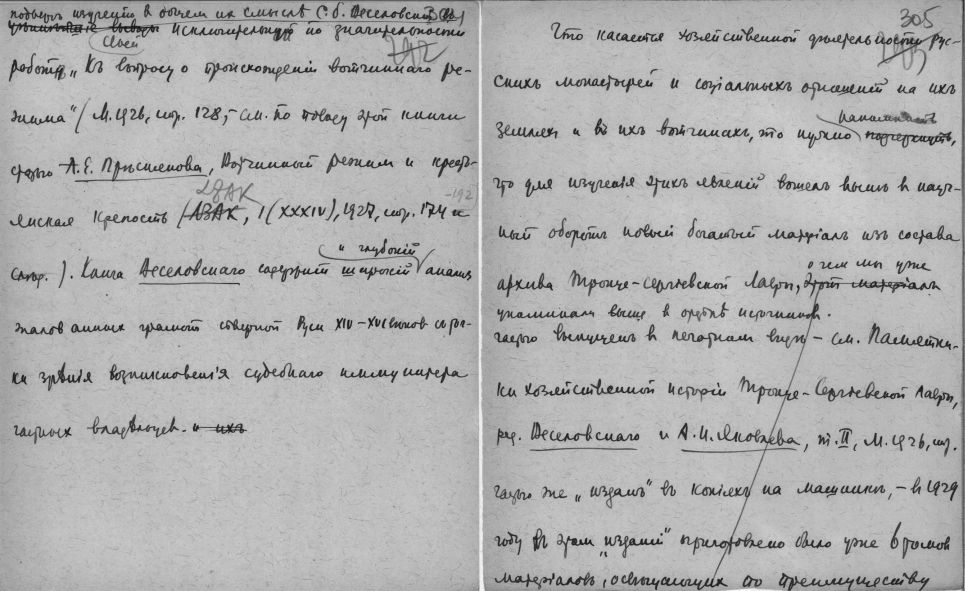 подвергъ изученію в общем их смыслѣ С. б. Веселовскій въ
своей исключительной по значительности
работѣ „Къ вопросу о происхожденіи вотчиннаго ре-
жима“ (М. 1926, стр. 128, – см. по поводу этой книги
статью А. Е. Прѣснякова, Вотчинный режим и кресть-
янская крепость (ЛЗАК, I (XXXIV), 1927, стр. 174 и
след.). Книга Веселовскаго содержит широкій и глубокій анализ
жалованных грамот северной Руси XIV–XVI веков с точ-
ки зрѣнія возникновенія судебнаго иммунитета
частных владѣльцев. и ихъ
305
Что касается хозяйственной дѣятельности рус-
скихъ монастырей и соціальныхъ отношеній на ихъ
землях и въ ихъ вотчинахъ, то нужно напомнить подчеркнуть,
что для изученія этихъ явленій вошелъ нынѣ в науч-
ный оборотъ новый богатый матеріалъ изъ состава
о чем мы уже
архива Троице-Сергіевской Лавры, этот матеріалъ
упоминали выше в отдѣлѣ источников.
частью выпущенъ в печатном видѣ – см. Памятни-
ки хозяйственной исторіи Троице-Сергіевской Лавры,
ред. Веселовскаго и А. И. Яковлева, т. II, М. 1926, стр.
частью же „изданъ“ въ копіяхъ на машинкѣ, – в 1929
году въ этом „изданіи“ приготовлено было уже 6 томов
матеріаловъ, освещающих по преимуществу